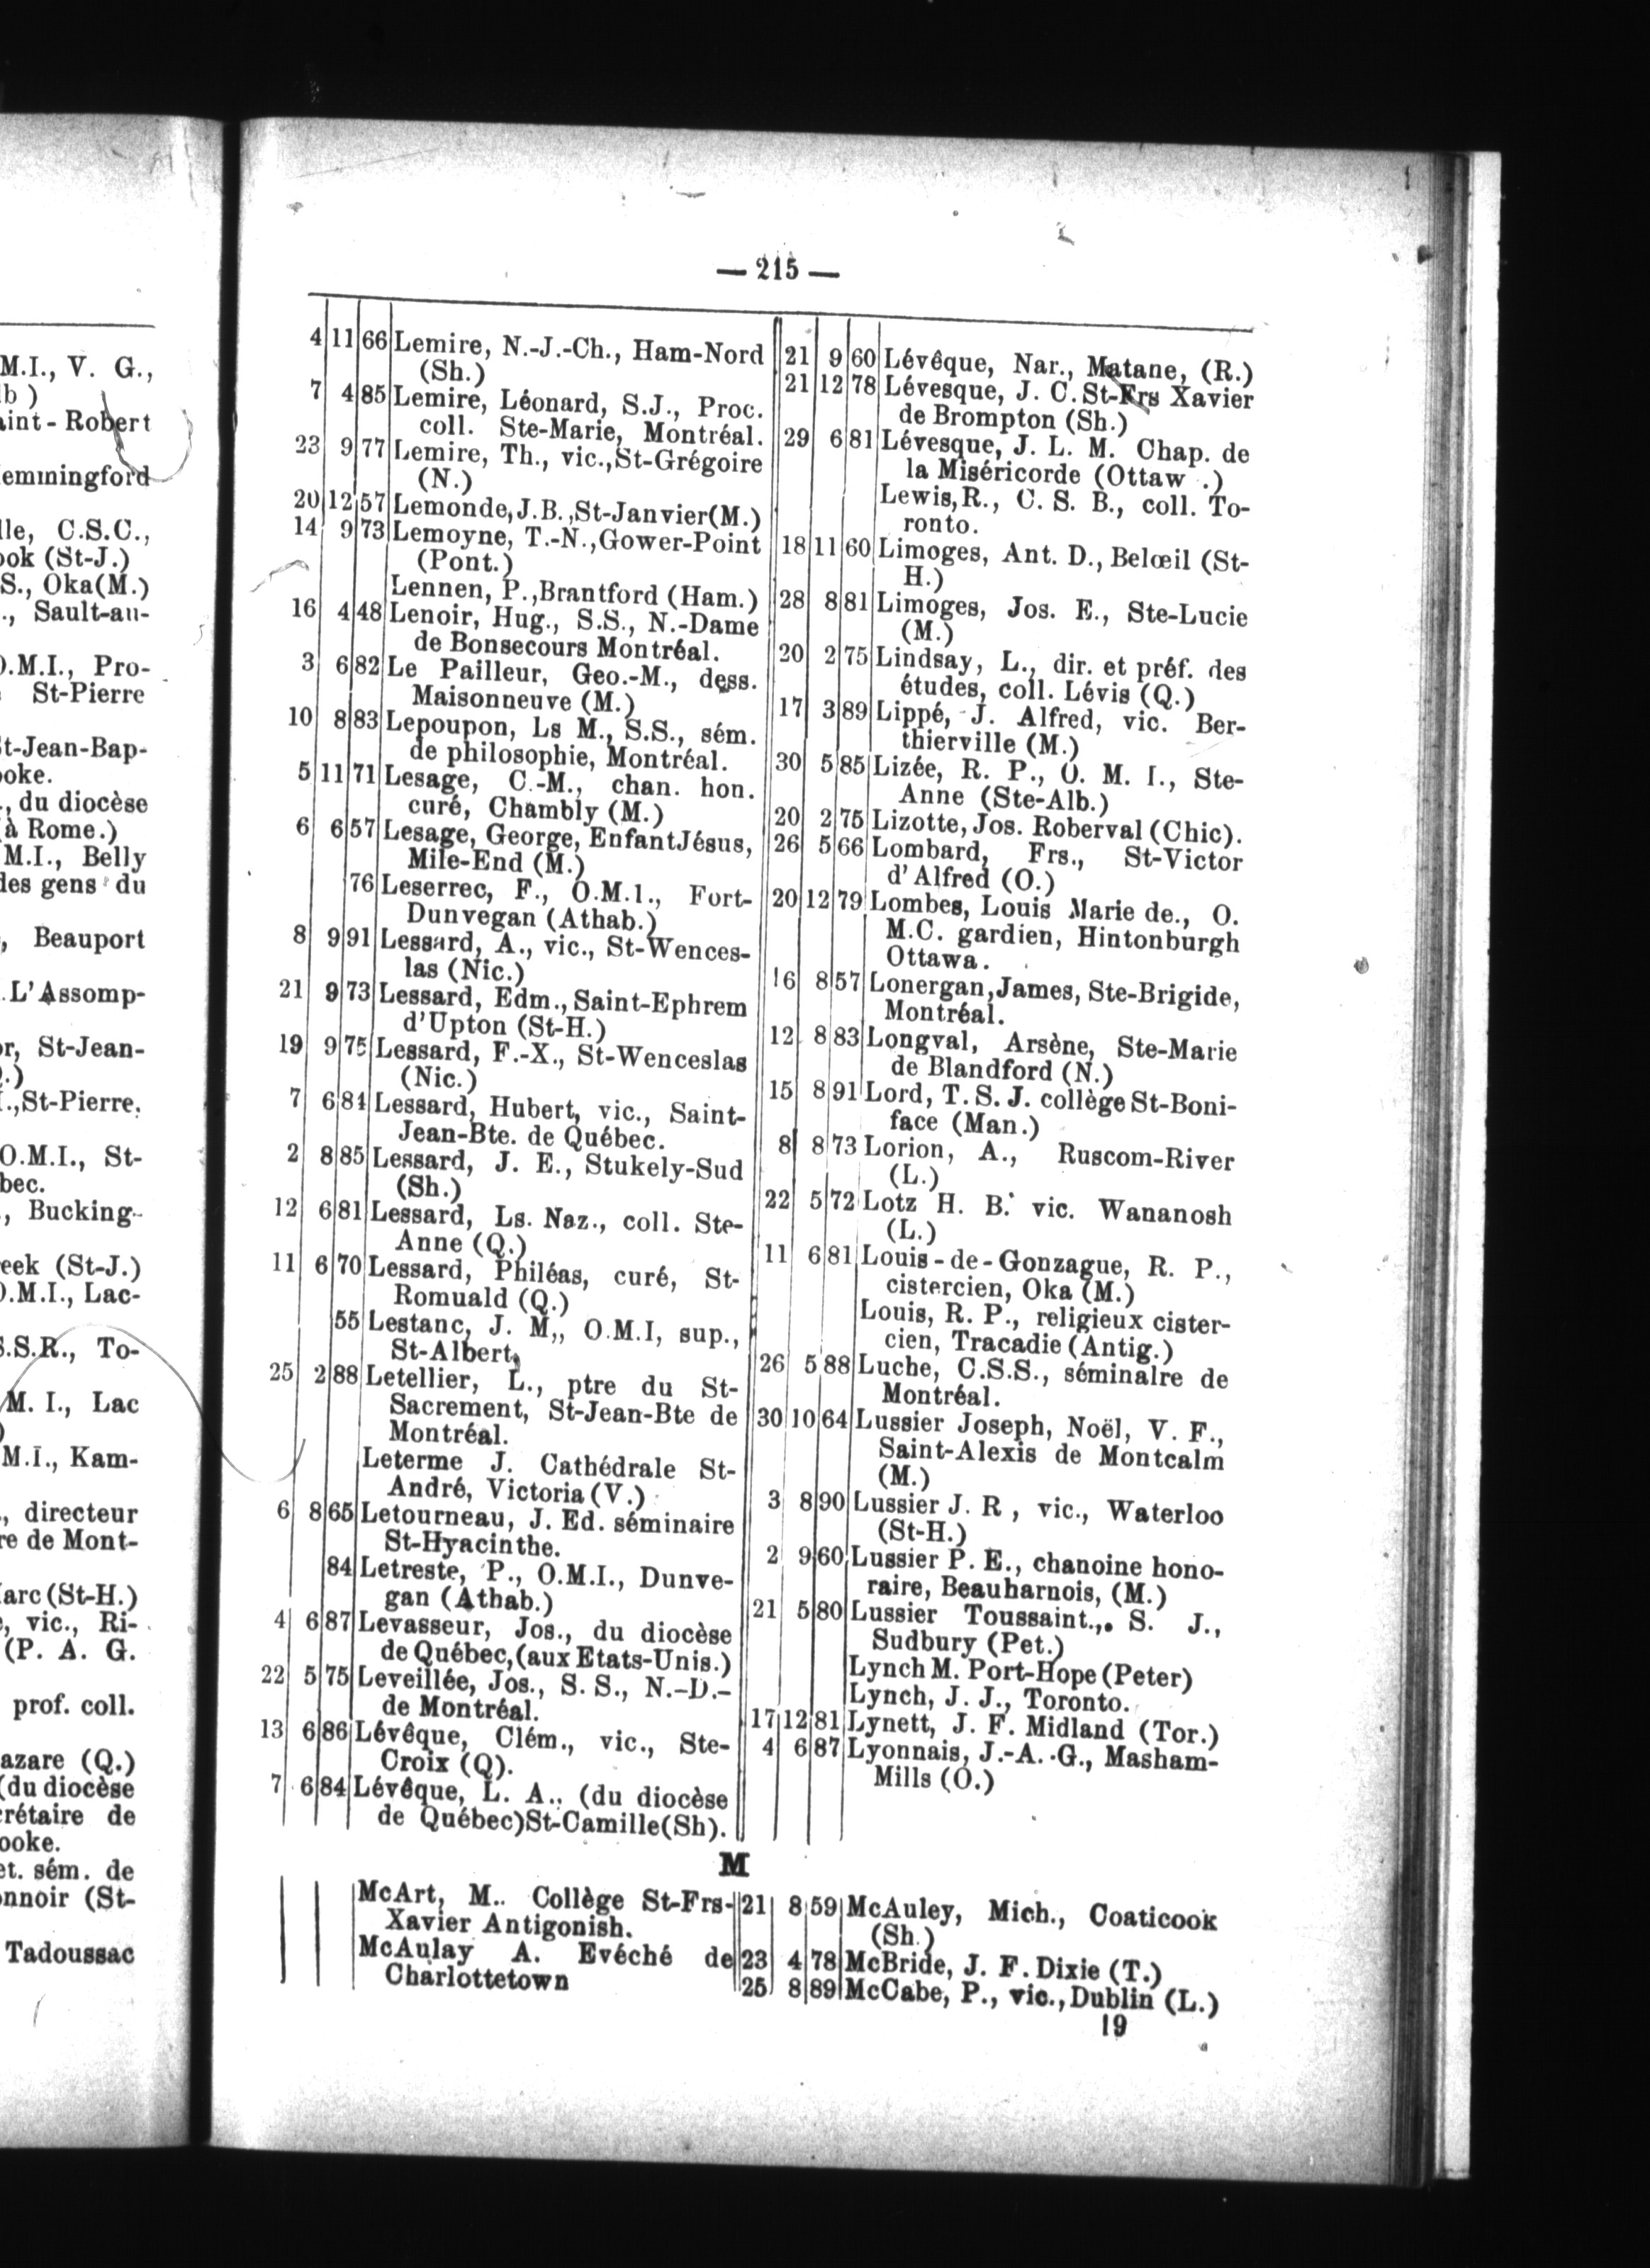 M.I., V. G.,
lb )
aint-Robert
emmingford
lle, C.S.C.,
ook (St-J.)
S., Oka(M.)
., Sault-au-
O.M.I., Pro-
St-Pierre
St-Jean-Bap-
ooke.
., du diocèse
(à Rome.)
M.I., Belly
des gens du
, Beauport
. L'Assomp-
or, St-Jean-
.)
.,St-Pierre.
O.M.I., St-
bec.
., Bucking-
eek (St-J.)
O.M.I., Lac-
S.S.R., To-
M. I., Lac
)
M.I., Kam-
., directeur
re de Mont-
arc (St-H.)
, vic., Ri-
(P. A. G.
prof. coll.
azare (Q.)
(du diocèse
crétaire de
ooke.
et. sém. de
onnoir (St-
Tadoussac
— 215 —
4 11 66 Lemire, N.-J.-Ch., Ham-Nord
(Sh.)
7 4 85 Lemire, Léonard, S.J., Proc.
coll. Ste-Marie, Montréal.
23 9 77 Lemire, Th., vic., St-Grégoire
(N.)
20 12 57 Lemonde, J.B., St-Janvier(M.)
14 9 73 Lemoyne, T.-N., Gower-Point
(Pont.)
Lennen, P., Brantford (Ham.)
16 4 48 Lenoir, Hug., S.S., N.-Dame
de Bonsecours Montréal.
3 6 82 Le Pailleur, Geo.-M., dess.
Maisonneuve (M.)
10 8 83 Lepoupon, Ls M., S.S., sém.
de philosophie, Montréal.
5 11 71 Lesage, C.-M., chan. hon.
curé, Chambly (M.)
6 6 57 Lesage, George, Enfant Jésus,
Mile-End (M.)
76 Leserrec, F., O.M.I., Fort-
Dunvegan (Athab.)
8 9 91 Lessard, A., vic., St-Wences-
las (Nic.)
21 9 73 Lessard, Edm., Saint-Ephrem
d'Upton (St-H.)
19 9 75 Lessard, F.-X., St-Wenceslas
(Nic.)
7 6 84 Lessard, Hubert, vic., Saint-
Jean-Bte. de Québec.
2 8 85 Lessard, J. E., Stukely-Sud
(Sh.)
12 6 81 Lessard, Ls. Naz., coll. Ste-
Anne (Q.)
11 6 70 Lessard, Philéas, curé, St-
Romuald (Q.)
55 Lestanc, J. M,, O.M.I, sup.,
St-Albert,
25 2 88 Letellier, L., ptre du St-
Sacrement, St-Jean-Bte de
Montréal.
Leterme J. Cathédrale St-
André, Victoria (V.)
6 8 65 Letourneau, J. Ed. séminaire
St-Hyacinthe.
84 Letreste, P., O.M.I., Dunve-
gan (Athab.)
4 6 87 Levasseur, Jos., du diocèse
de Québec, (aux Etats-Unis.)
22 5 75 Leveillée, Jos., S. S., N.-D.-
de Montréal.
13 6 86 Lévêque, Clém., vic., Ste-
Croix (Q).
7 6 84 Lévêque, L. A., (du diocèse
de Québec) St-Camille(Sh).
21 9 60 Lévêque, Nar., Matane, (R.)
21 12 78 Lévesque, J. C. St-Frs Xavier
de Brompton (Sh.)
29 6 81 Lévesque, J. L. M. Chap. de
la Miséricorde (Ottaw .)
Lewis, R., C. S. B., coll. To-
ronto.
18 11 60 Limoges, Ant. D., Belœil (St-
H.)
28 8 81 Limoges, Jos. E., Ste-Lucie
(M.)
20 2 75 Lindsay, L., dir. et préf. des
études, coll. Lévis (Q.)
17 3 89 Lippé, J. Alfred, vic. Ber-
thierville (M.)
30 5 85 Lizée, R. P., O. M. I., Ste-
Anne (Ste-Alb.)
20 2 75 Lizotte, Jos. Roberval (Chic).
26 5 66 Lombard, Frs., St-Victor
d'Alfred (O.)
20 12 79 Lombes, Louis Marie de., O.
M.C. gardien, Hintonburgh
Ottawa.
16 8 57 Lonergan, James, Ste-Brigide,
Montréal.
12 8 83 Longval, Arsène, Ste-Marie
de Blandford (N.)
15 8 91 Lord, T. S. J. collège St-Boni-
face (Man.)
8 8 73 Lorion, A., Ruscom-River
(L.)
22 5 72 Lotz H. B. vic. Wananosh
(L.)
11 6 81 Louis-de-Gonzague, R. P.,
cistercien, Oka (M.)
Louis, R. P., religieux cister-
cien, Tracadie (Antig.)
26 5 88 Luche, C.S.S., séminaire de
Montréal.
30 10 64 Lussier Joseph, Noël, V. F.,
Saint-Alexis de Montcalm
(M.)
3 8 90 Lussier J. R , vic., Waterloo
(St-H.)
2 9 60 Lussier P. E., chanoine hono-
raire, Beauharnois, (M.)
21 5 80 Lussier Toussaint.,. S. J.,
Sudbury (Pet.)
Lynch M. Port-Hope (Peter)
Lynch, J. J., Toronto.
17 12 81 Lynett, J. F. Midland (Tor.)
4 6 87 Lyonnais, J.-A.-G., Masham-
Mills (O.)
M
McArt, M.. Collège St-Frs-
Xavier Antigonish.
McAulay A. Evéché de
Charlottetown
21 8 59 McAuley, Mich., Coaticook
(Sh.)
23 4 78 McBride, J. F. Dixie (T.)
25 8 89 McCabe, P., vic., Dublin (L.)
19